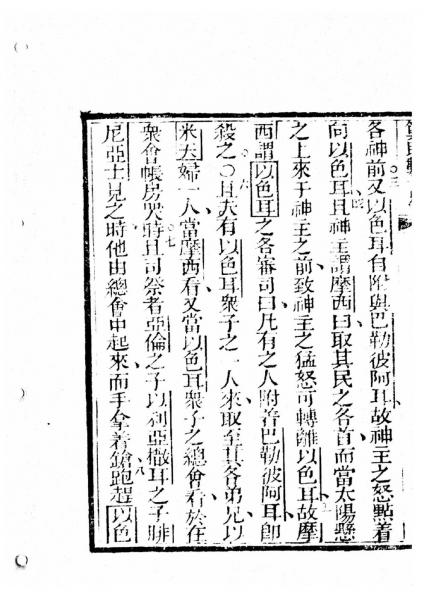 各神前又以色耳自附與巴勒彼阿耳故神主之怒點着
向以色耳且神主謂摩西曰取其民之各首而當太陽懸
之上來于神主之前致神主之猛怒可轉離以色耳故摩
西謂以色耳之各審司曰凡有之人附著巴勒彼阿耳即
殺之〇且夫有以色耳衆子之一人來取至其各弟兄以
米夫婦一人當摩西看又當以色耳衆子之總會看於在
衆會帳房哭時且司祭者亞倫之子以利亞撒耳之子腓
尼亞士見之時他由總會中起來而手拿着鎗跑趕以色